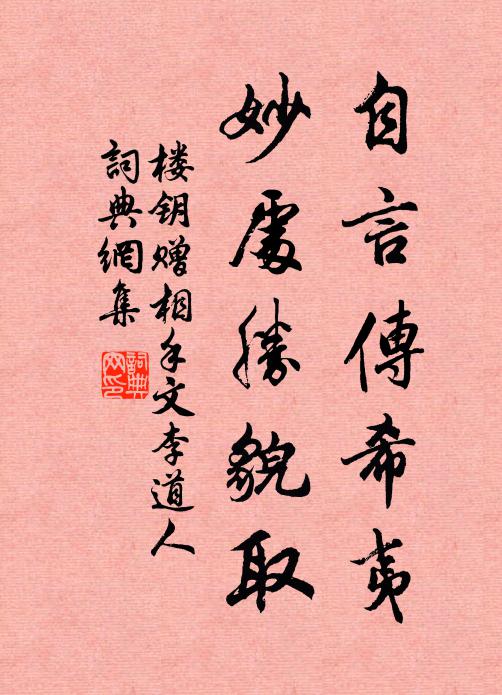 自言傳希夷
妙處勝貌取
楼钥赠相手文李道人
詞典網集
詞典網印